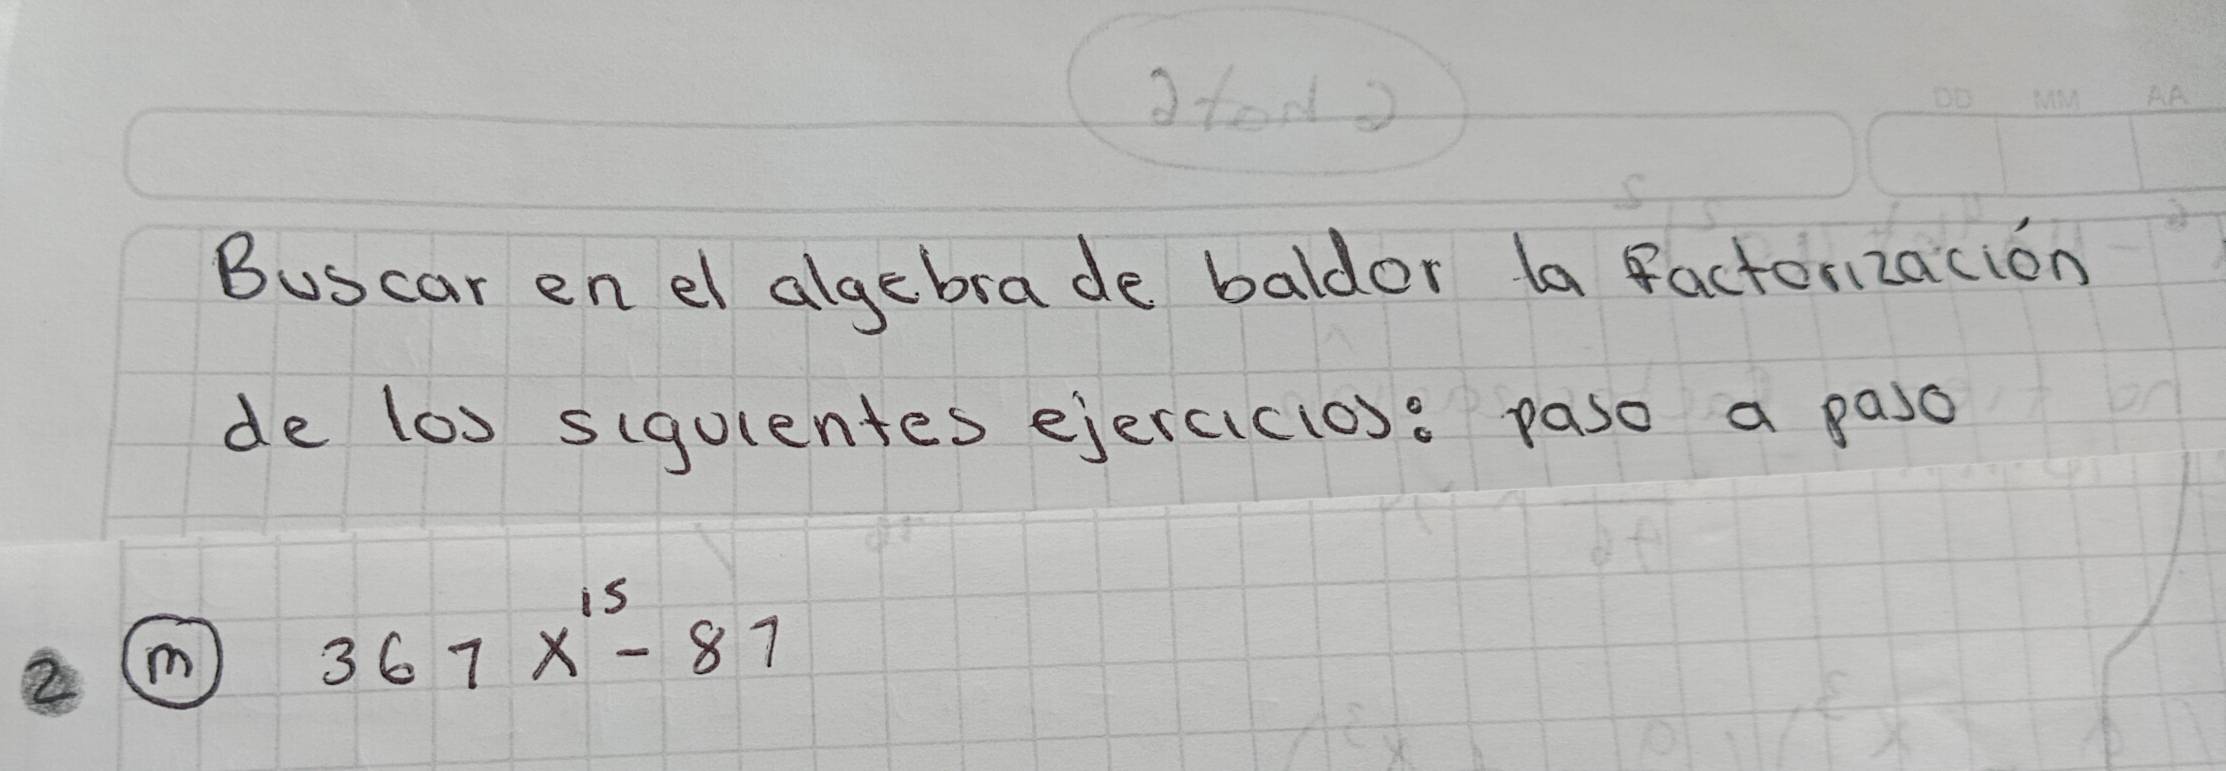 DD MM AA
Buscar en el algebra de baldor la Factorización
de los siguientes ejercicios: paso a paso
2 m 367 x¹⁵ - 87